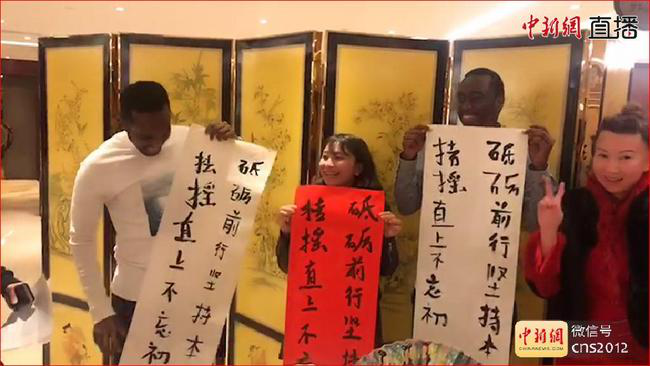 中新網 直播
砥砺前行坚持本
摇直上不忘初
砥砺前行坚
摇直上不
砥砺前行坚持本
摇直上不忘初
中新網
微信号
cns2012